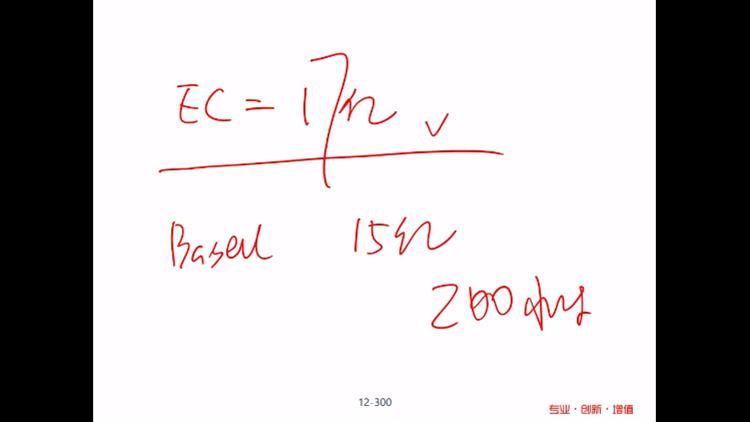 EC = 17亿 √
Basel 15亿
200
12-300
专业·创新·增值